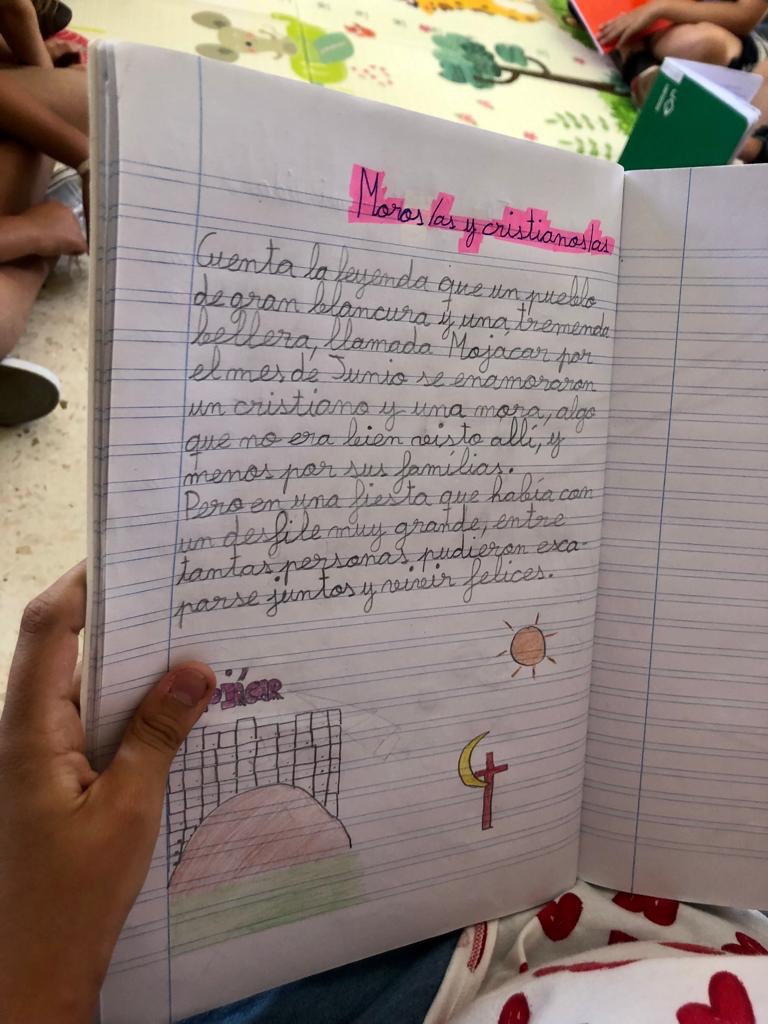 Moros/as y cristianos/as
Cuenta la leyenda que un pueblo
de gran blancura y una tremenda
belleza, llamada Mojacar por
el mes de Junio se enamoraron
un cristiano y una mora, algo
que no era bien visto allí, y
menos por sus famílias.
Pero en una fiesta que había con
un desfile muy grande, entre
tantas personas pudieron esca-
parse juntos y vivir felices.